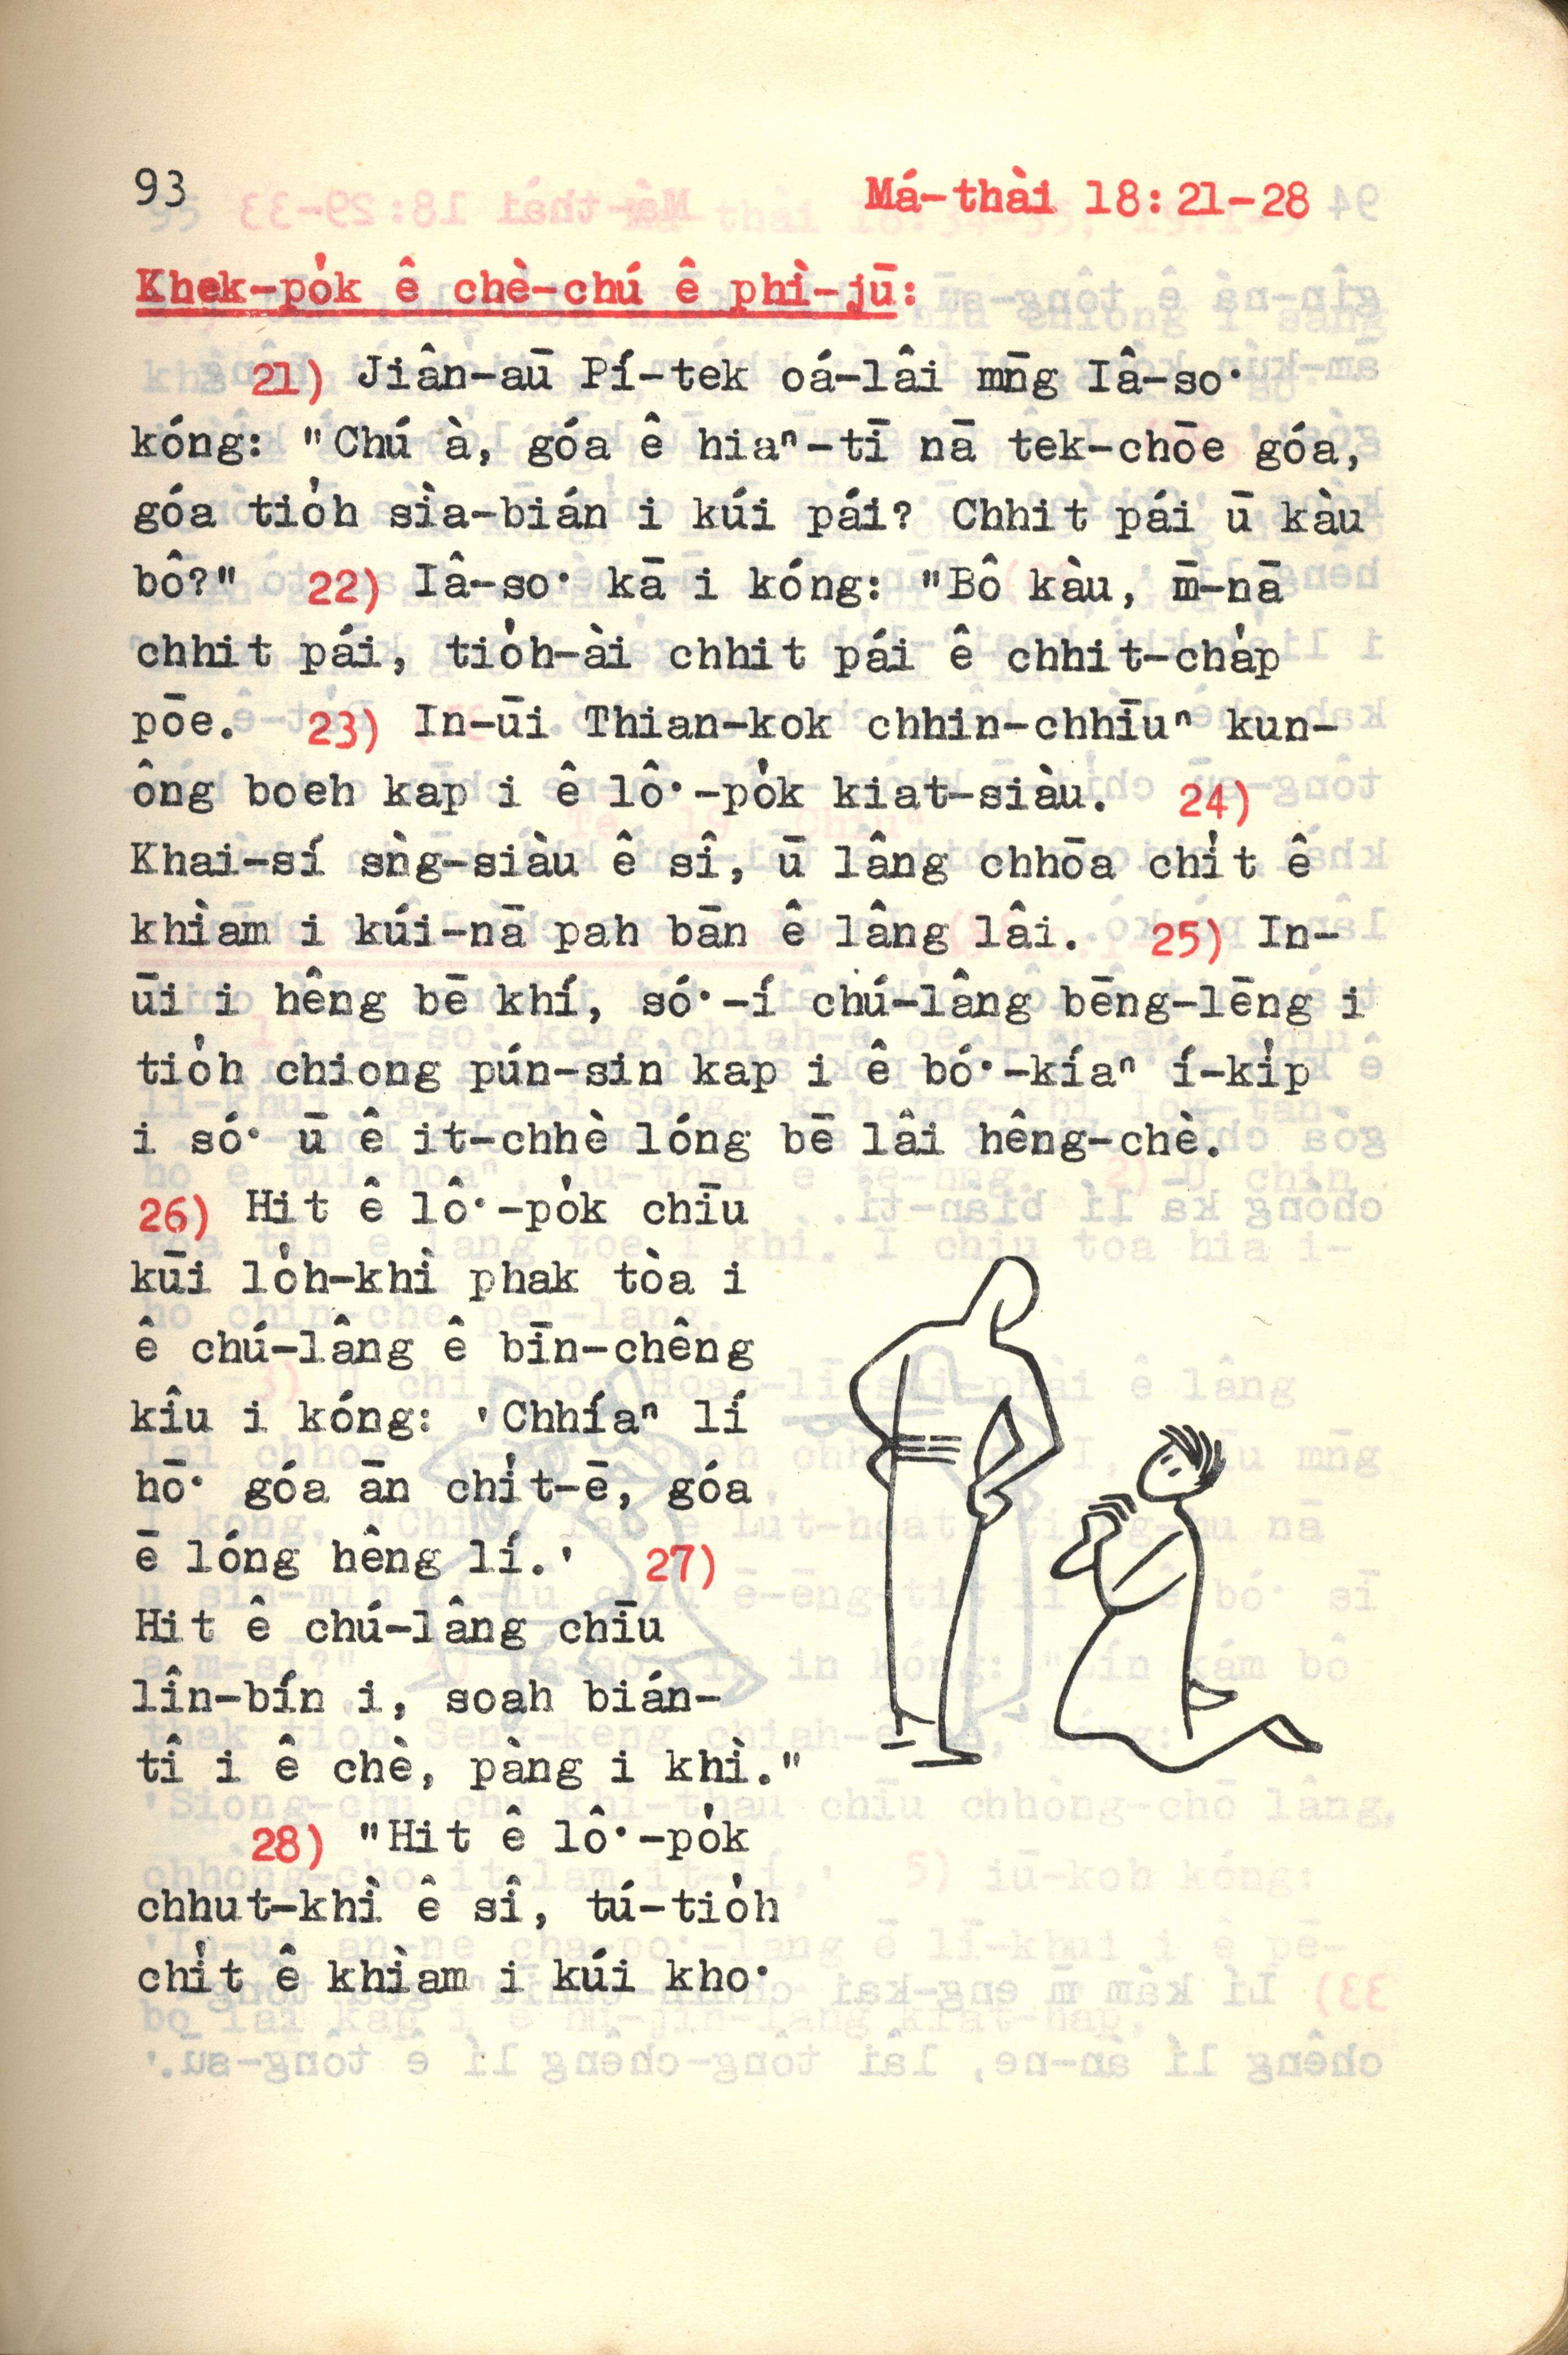 93 Má-thài 18:21-28
Khek-po̍k ê chè-chú ê phì-jū:
21) Jiân-aū Pí-tek oá-lâi mn̄g Iâ-so͘
kóng: "Chú à, góa ê hiaⁿ-tī nā tek-chōe góa,
góa tio̍h sìa-bián i kúi pái? Chhit pái ū kàu
bô?" 22) Iâ-so͘ kā i kóng: "Bô kàu, m̄-nā
chhit pái, tio̍h-ài chhit pái ê chhit-cha̍p
pōe. 23) In-ūi Thian-kok chhin-chhīuⁿ kun-
ông boeh kap i ê lô͘-po̍k kiat-siàu. 24)
Khai-sí sǹg-siàu ê sî, ū lâng chhōa chi̍t ê
khìam i kúi-nā pah bān ê lâng lâi. 25) In-
ūi i hêng bē khí, só͘-í chú-lâng bēng-lēng i
tio̍h chiong pún-sin kap i ê bó͘-kíaⁿ í-ki̍p
i só͘ ū ê it-chhè lóng bē lâi hêng-chè.
26) Hit ê lô͘-po̍k chīu
kūi lo̍h-khì phak tòa i
ê chú-lâng ê bīn-chêng
kîu i kóng: 'Chhíaⁿ lí
hō͘ góa ān chi̍t-ē, góa
ē lóng hêng lí.' 27)
Hit ê chú-lâng chīu
lîn-bín i, soah bián-
tî i ê chè, pàng i khì."
28) "Hit ê lô͘-po̍k
chhut-khì ê sî, tú-tio̍h
chi̍t ê khìam i kúi kho͘